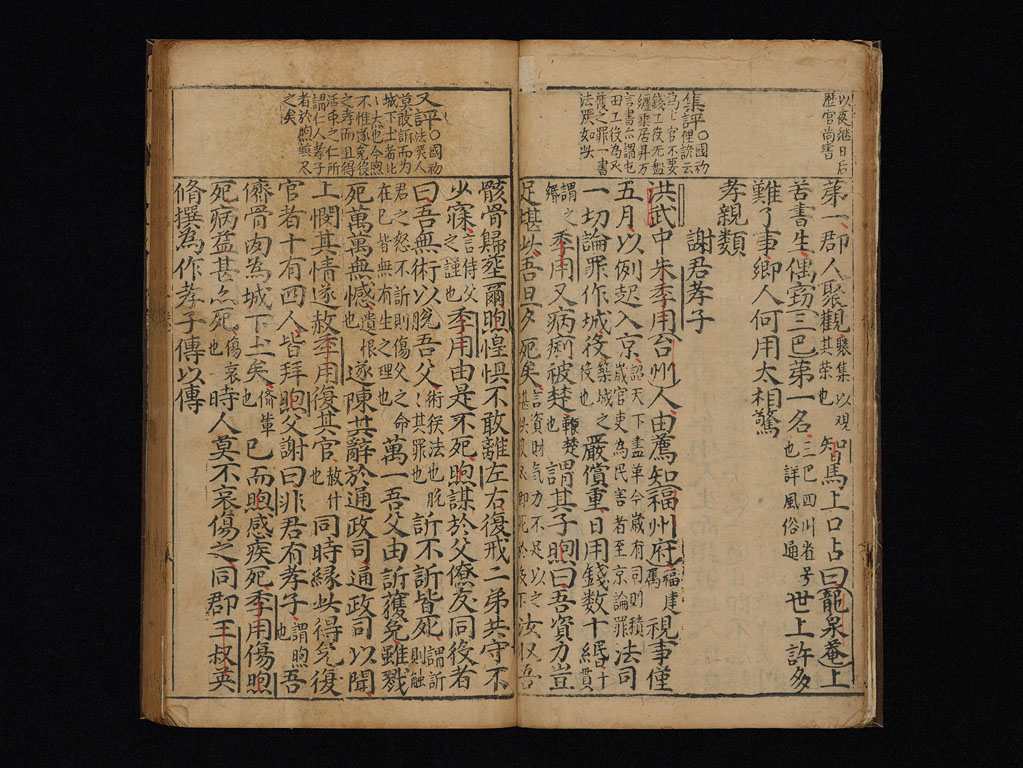 以夜継日后
歷官尚書
第一郡人聚觀聚集以觀其榮也知馬上口占曰龍泉菴上
苦書生偶竊三巴第一名三巴四川省号也詳風俗通世上許多
難了事鄉人何用太相驚
孝親類
謝君孝子
集評○國初
為官不要
錢工役
言書
田工役為又
之罪一書
法嚴如此
洪武中朱季用台州人由薦知福州府屬福建視事僅
五月以例起入京詔天下盡革今歲有司則積歲官吏為民害者至京論罪法司
一切論罪作城役築城之役也嚴賞重日用錢數十緡
謂之緡季用又病痢被楚鞭楚也謂其子煦曰吾資力豈
足堪此吾旦夕死矣言資財氣力不足以汝収吾
又評○國初
法灵人
莫敢訴而為
城下土者比
ゝ大也今煦
不惟遂免役
之孝而且得
活東之仁所
謂仁人孝子
者於煦尽
之矣
骸骨歸塟爾煦惶惧不敢離左右復戒二弟共守不
少寐言侍父之謹也季用由是不死煦謀於父僚友同役者
曰吾無術以脫吾父術猴法也脫ゝ其罪也訴不訴皆死謂訴則触
君之怒不訴則傷父之命在已皆無有生之理也萬一吾父由訴獲免雖戮
死萬萬無憾遺恨也遂陳其辭於通政司通政司以聞
上憫其情遂赦季用復其官赦什也同時緣此得免復
官者十有四人皆拜煦父謝曰非君有孝子謂煦也吾
儕骨肉為城下土矣儕輩也已而煦感疾死季用傷煦
死病益甚亦死傷哀也時人莫不哀傷之同郡王叔英
脩撰為作孝子傳以傳